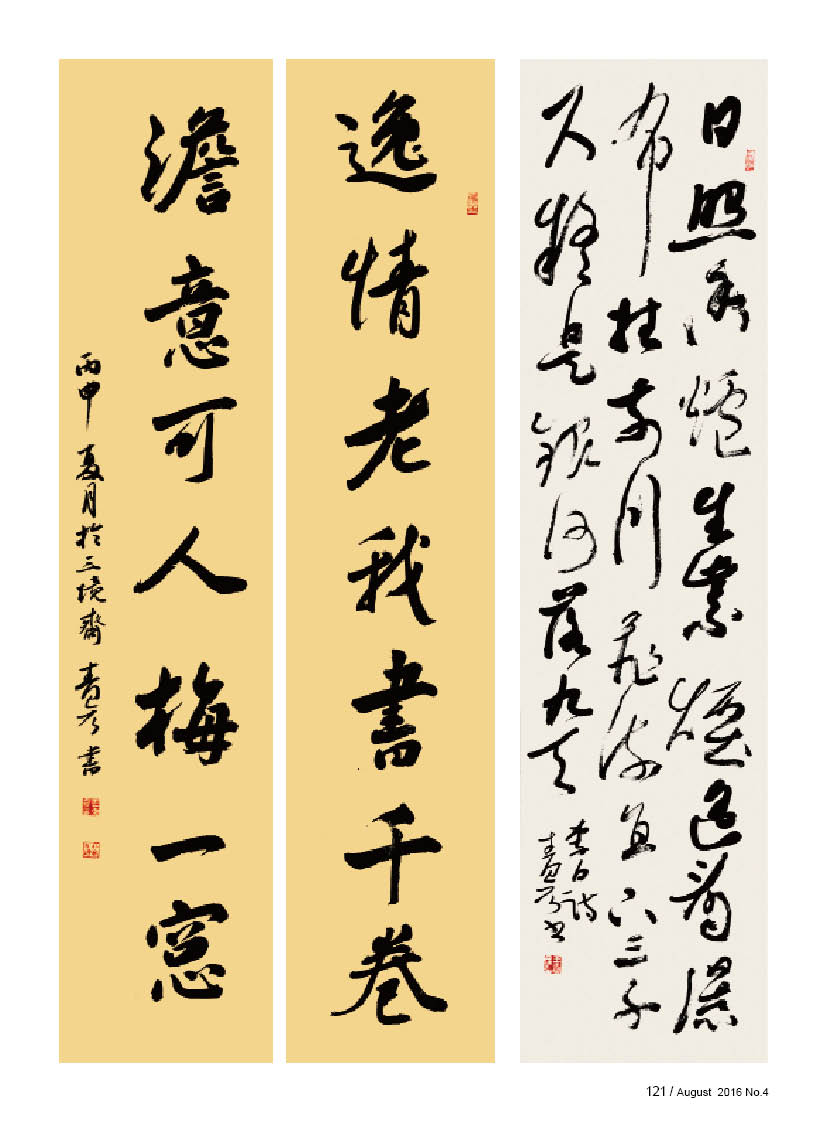 日照香爐生紫煙遙看瀑
布挂前川飛流直下三千
尺疑是銀河落九天
李白詩
書
逸情老我書千卷
澹意可人梅一窓
丙申夏月於三境齋 書
121 / August 2016 No.4